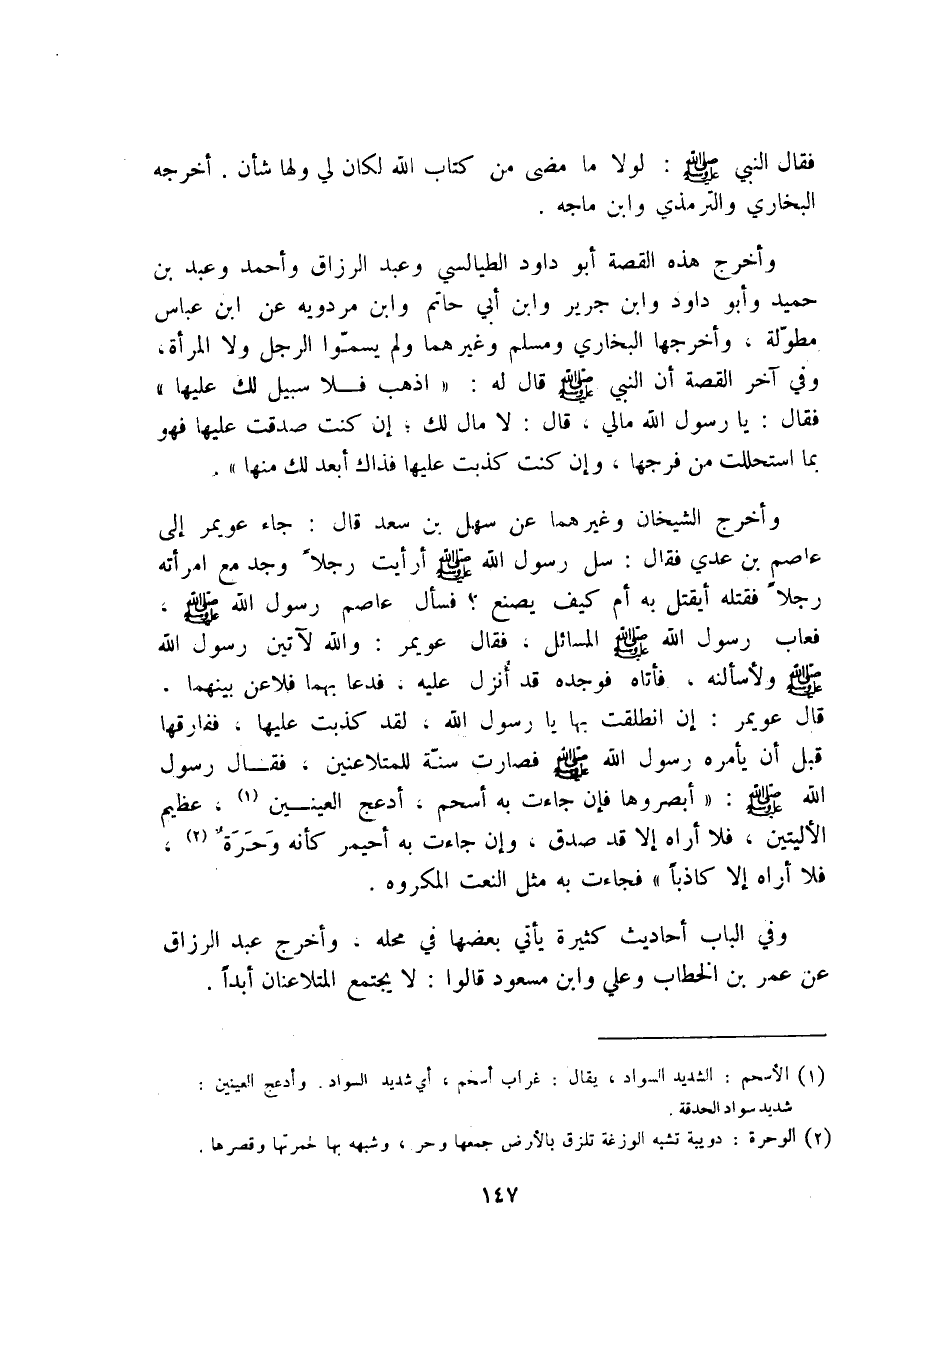 فقال النبي ﷺ : لولا ما مضى من كتاب الله لكان لي ولها شأن . أخرجه
البخاري والترمذي وابن ماجه .
وأخرج هذه القصة أبو داود الطيالسي وعبد الرزاق وأحمد وعبد بن
حميد وأبو داود وابن جرير وابن أبي حاتم وابن مردويه عن ابن عباس
مطوّلة ، وأخرجها البخاري ومسلم وغيرهما ولم يسمّوا الرجل ولا المرأة،
وفي آخر القصة أن النبي ﷺ قال له : « اذهب فـلا سبيل لك عليها »
فقال : يا رسول الله مالي ، قال : لا مال لك ؛ إن كنت صدقت عليها فهو
بما استحللت من فرجها ، وإن كنت كذبت عليها فذاك أبعد لك منها » .
وأخرج الشيخان وغيرهما عن سهل بن سعد قال : جاء عويمر إلى
عاصم بن عدي فقال : سل رسول الله ﷺ أرأيت رجلاً وجد مع امرأته
رجلاً فقتله أيقتل به أم كيف يصنع ؟ فسأل عاصم رسول الله ﷺ ،
فعاب رسول الله ﷺ المسائل ، فقال عويمر : والله لآتين رسول الله
ﷺ ولأسألنه ، فأتاه فوجده قد أُنزل عليه ، فدعا بهما فلاعن بينهما .
قال عويمر : إن انطلقت بها يا رسول الله ، لقد كذبت عليها ، ففارقها
قبل أن يأمره رسول الله ﷺ فصارت سنّة للمتلاعنين ، فقـال رسول
الله ﷺ : « أبصروها فإن جاءت به أسحم ، أدعج العينـين (١) ، عظيم
الأليتين ، فلا أراه إلا قد صدق ، وإن جاءت به أحيمر كأنه وَحَرَةٌ (٢) ،
فلا أراه إلا كاذباً » فجاءت به مثل النعت المكروه .
وفي الباب أحاديث كثيرة يأتي بعضها في محله ، وأخرج عبد الرزاق
عن عمر بن الخطاب وعلي وابن مسعود قالوا : لا يجتمع المتلاعنان أبداً .
(١) الأسحم : الشديد السواد ، يقال : غراب أسحم ، أي شديد السواد . وأدعج العينين :
شديد سواد الحدقة .
(٢) الوحرة : دويبة تشبه الوزغة تلزق بالأرض جمعها وحر ، وشبهه بها لحمرتها وقصرها .
١٤٧